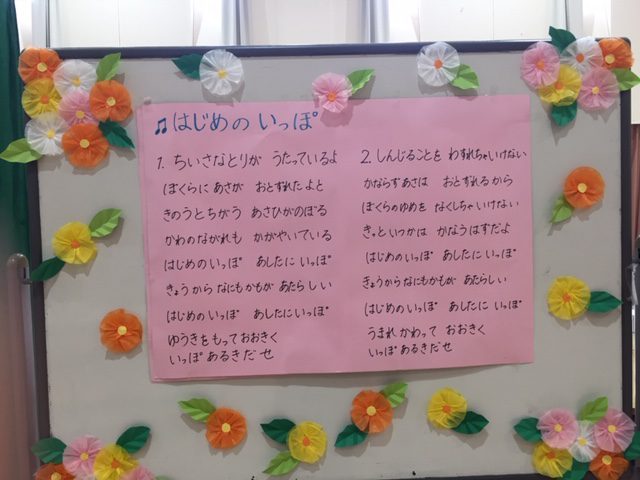 ♫はじめの いっぽ
1. ちいさなとりが うたっているよ
ぼくらに あさが おとずれたよと
きのうとちがう あさひがのぼる
かわのながれも かがやいている
はじめのいっぽ あしたに いっぽ
きょうから なにもかもが あたらしい
はじめのいっぽ あしたに いっぽ
ゆうきをもって おおきく
いっぽ あるきだせ
2. しんじることを わすれちゃいけない
かならずあさは おとずれるから
ぼくらのゆめを なくしちゃいけない
きっといつかは かなうはずだよ
はじめのいっぽ あしたに いっぽ
きょうから なにもかもが あたらしい
はじめのいっぽ あしたに いっぽ
うまれかわって おおきく
いっぽ あるきだせ